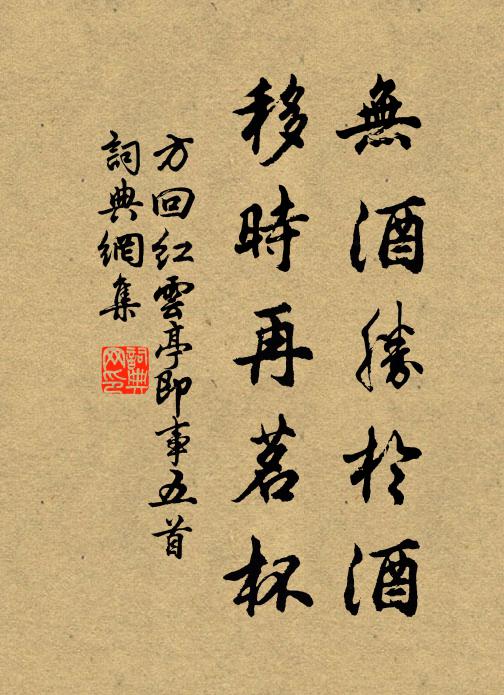 無酒勝於酒
移時再茗杯
方回紅雲亭即事五首
詞典網集
詞典网印